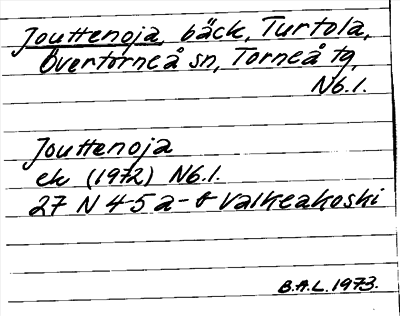 Jouttenoja, bäck, Turtola,
Övertorneå sn, Torneå tg,
Nb.l.
Jouttenoja
ek (1972) Nb.l.
27 N 4-5 a-b Valkeakoski
B.A.L. 1973.